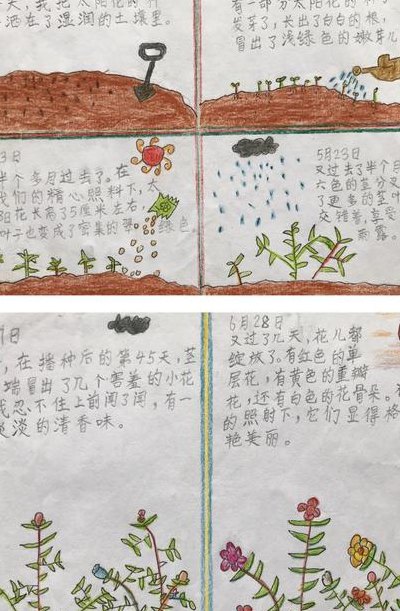 天,我把太阳花的种
洒在了湿润的土壤里。
有一部分太阳花的种子
发芽了,长出了白白的根,
冒出了浅绿色的嫩芽儿
3日
半个多月过去了。在
我们的精心照料下,太
阳花长高了5厘米左右,
叶子也变成了密集的翠绿色
5月23日
又过去了半个月
六色的茎分叉
了更多的茎叶
交错着,享受
雨露。
7日
,在播种后的第45天,茎
端冒出了几个害羞的小花
我忍不住上前闻了闻,有一
淡淡的清香味。
6月28日
又过了几天,花儿都
绽放了。有红色的单
层花,有黄色的重瓣
花,还有白色的花骨朵。
的照射下,它们显得格
艳美丽。